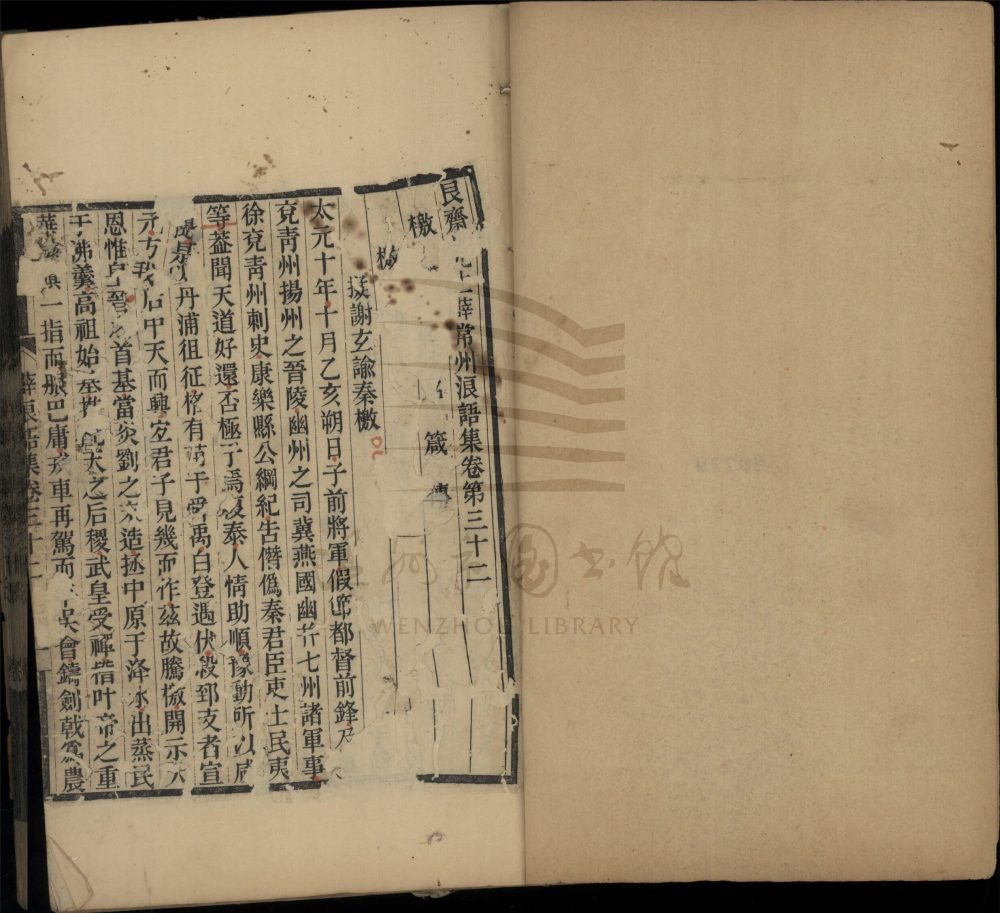 艮齋 薛常州浪語集卷第三十二
檄 箴 傳
檄
擬謝玄諭秦檄
太元十年十月乙亥朔日子前將軍假節都督前鋒及
兗青州揚州之晉陵幽州之司冀燕國幽并七州諸軍事
徐兗青州刺史康樂縣公綱紀告僭僞秦君臣吏士民夷
等蓋聞天道好還否極了焉復泰人情助順豫動所以
丹浦徂征格有苗于 禹白登遇伏殺郅支者宣
元方我后中天而興宜君子見幾而作茲故騰檄開示
恩惟 晉 首基當炎劉之 造拯中原于洚水出蒸民
于沸羹高祖始 天之后稷武皇受禪 叶帝之重
華 一指而服巴庸戎車再駕而 吳會鑄劍戟爲農
薛 語集卷三十二
WENZHOU LIBRARY